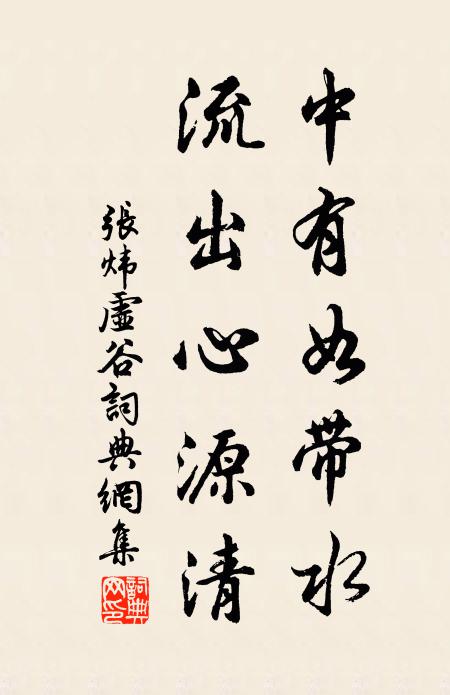 中有如带水
流出心源清
張炜虚谷詞典網集
詞典網印